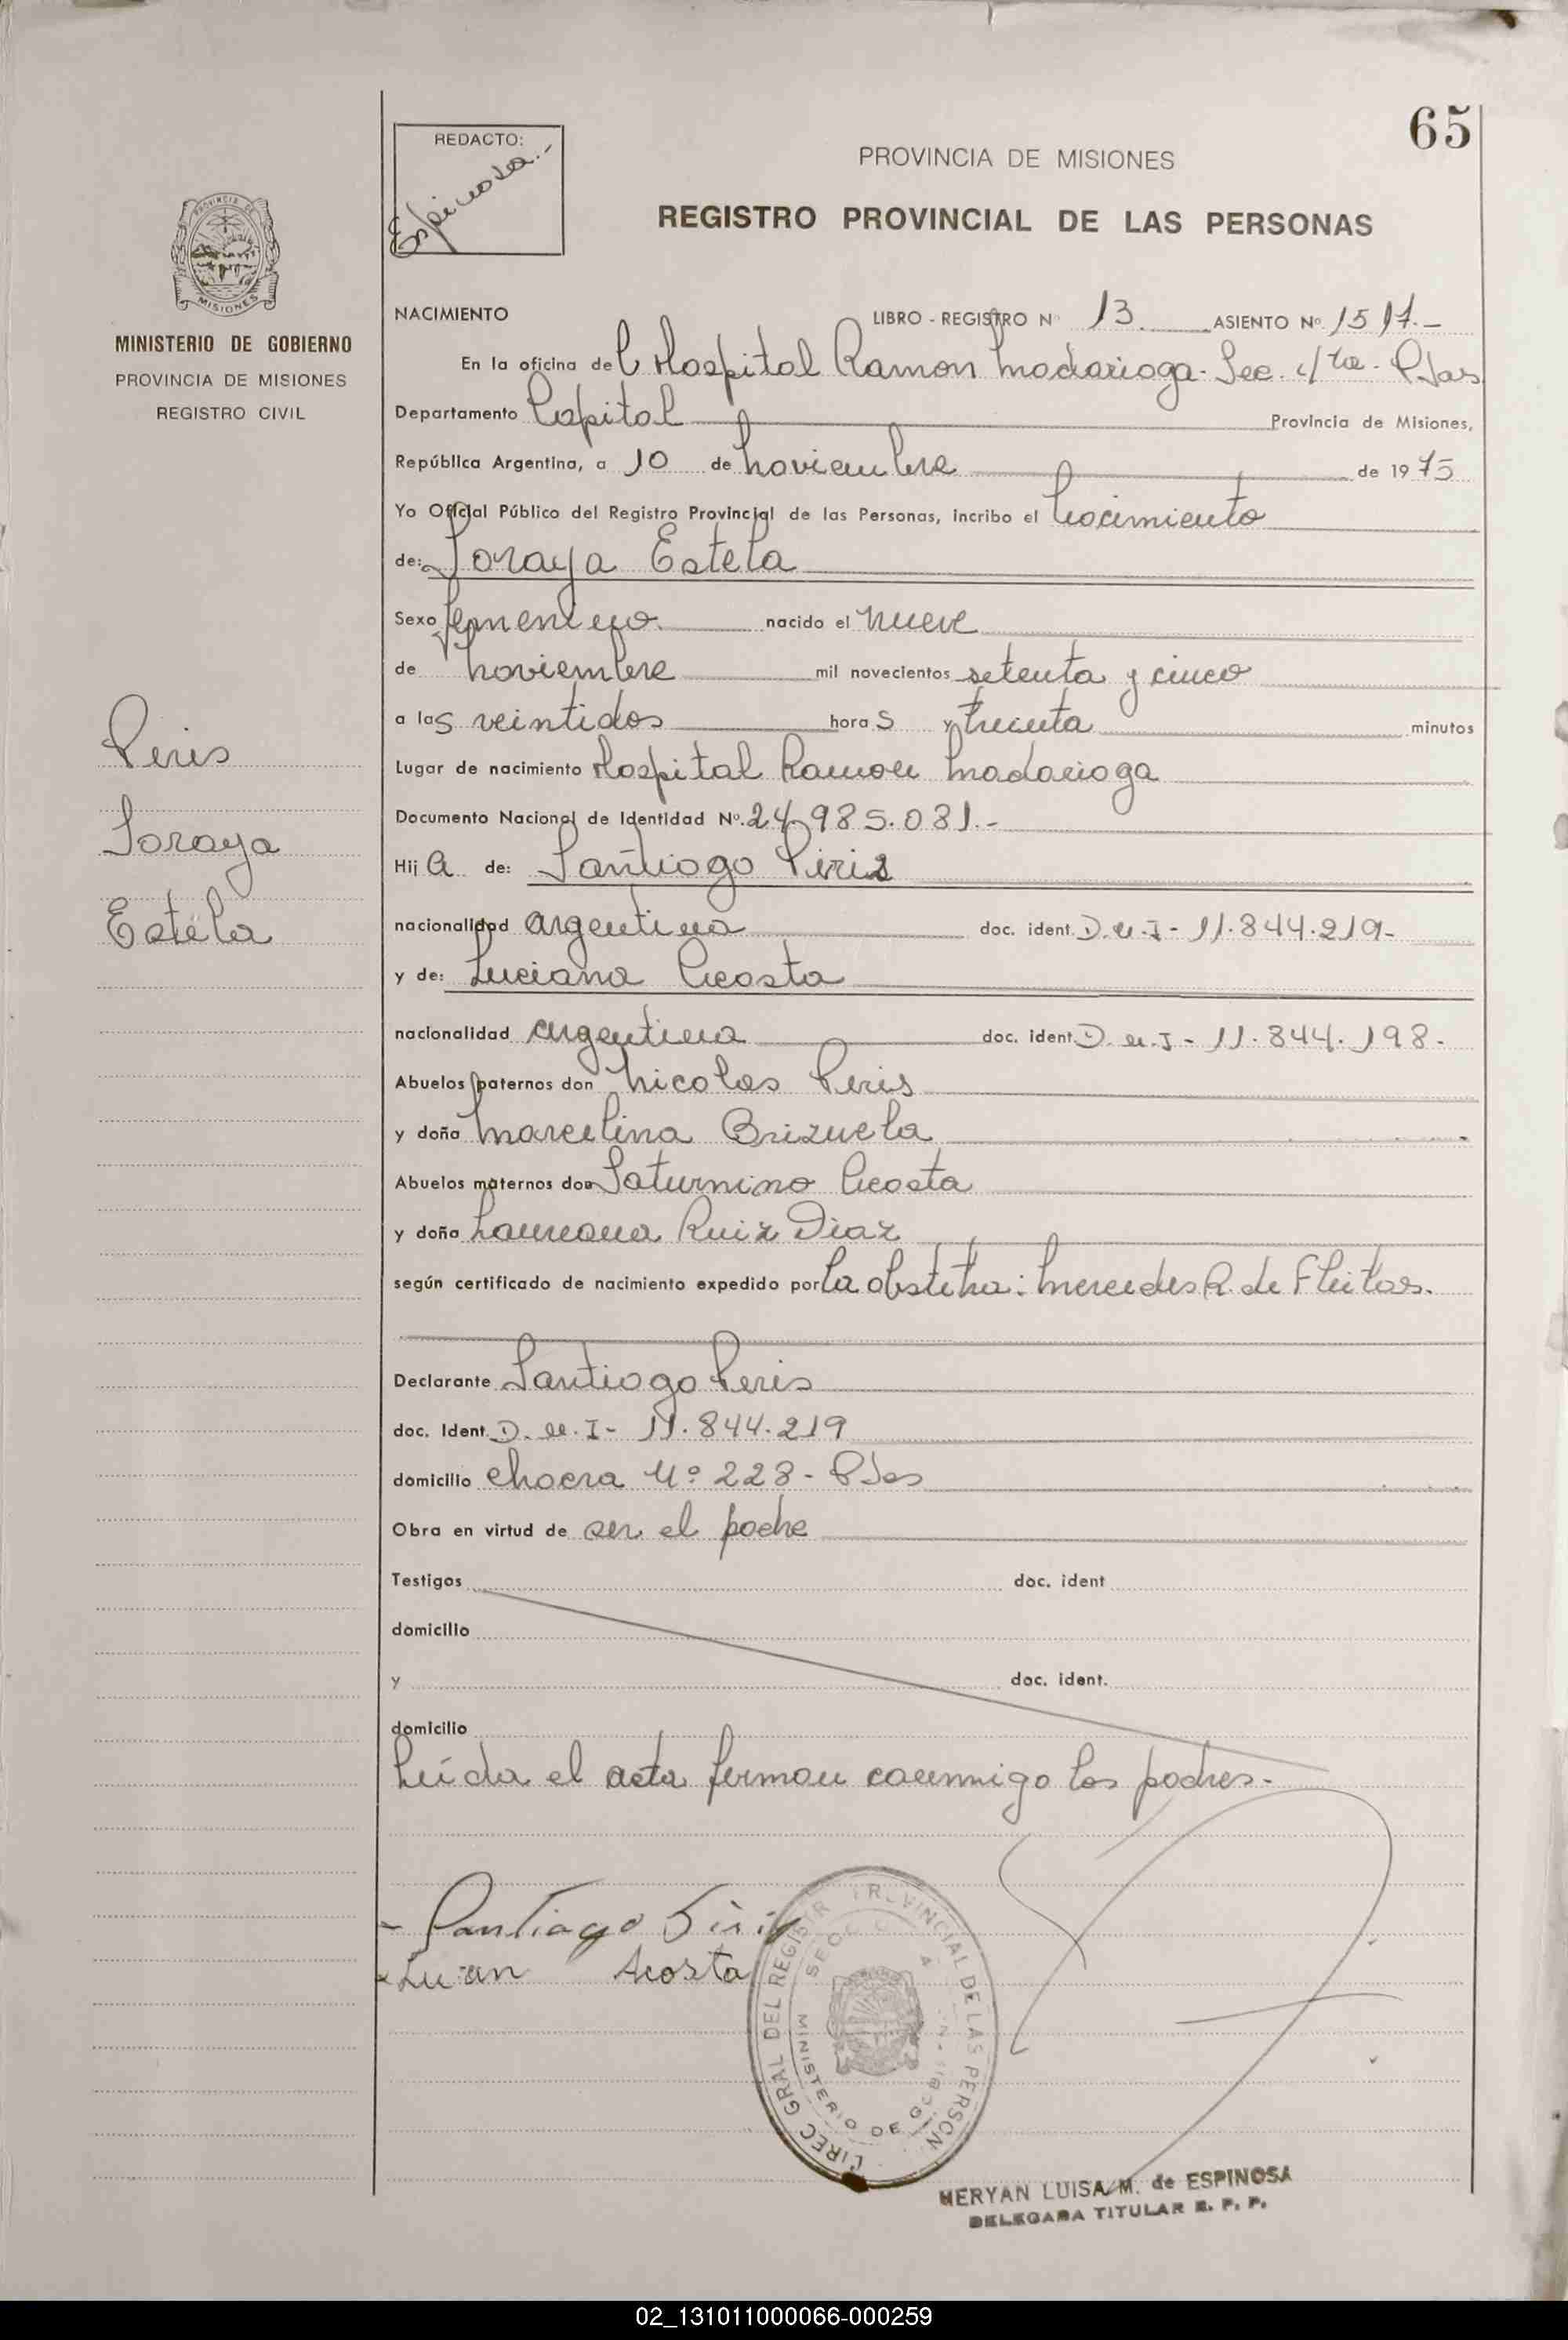 65
REDACTO:
Espinosa.-
PROVINCIA DE MISIONES
REGISTRO PROVINCIAL DE LAS PERSONAS
PROVINCIA DE
MISIONES
MINISTERIO DE GOBIERNO
PROVINCIA DE MISIONES
REGISTRO CIVIL
NACIMIENTO LIBRO - REGISTRO Nº 13 ASIENTO Nº 1517.-
En la oficina del Hospital Ramon Madariaga - Sec. c/ta - Pdas
Departamento Capital Provincia de Misiones,
República Argentina, a 10 de noviembre de 1975
Yo Oficial Público del Registro Provincial de las Personas, incribo el nacimiento
de: Soraya Estela
Sexo femenino nacido el nueve
de noviembre mil novecientos setenta y cinco
a las veintidos horas y treinta minutos
Lugar de nacimiento Hospital Ramon Madariaga
Documento Nacional de Identidad Nº. 24.985.031.-
Hija de: Santiago Piris
nacionalidad argentina doc. ident. D.N.I - 11.844.219-
y de: Luciana Acosta
nacionalidad argentina doc. ident. D.N.I - 11.844.198-
Abuelos paternos don Nicolas Peris
y doña Marcelina Brizuela
Abuelos maternos don Saturnino Acosta
y doña Laureana Ruiz Diaz
según certificado de nacimiento expedido por La obstetra: Mercedes R. de Fleitas.
Declarante Santiago Peris
doc. Ident. D.N.I- 11.844.219
domicilio Chacra Nº 228 - Pdas
Obra en virtud de ser el padre
Testigos doc. ident
domicilio
y doc. ident.
domicilio
Leída el acta firman conmigo los padres.-
Peris
Soraya
Estela
- Santiago Piris
Acosta
DIREC GRAL DEL REGISTR PROVINCIAL DE LAS PERSON
MINISTERIO DE GOBI
MERYAN LUISA M. de ESPINOSA
DELEGADA TITULAR R. P. P.
02_131011000066-000259